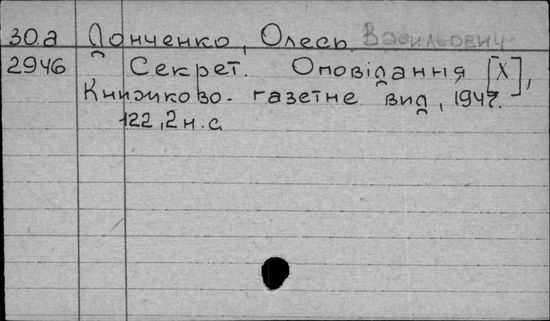 30.а Донченко, Олесь Васильович
2946 Секрет. Оповідання [Х],
Книжково-газетне вид, 1947.
122, 2 н.с.